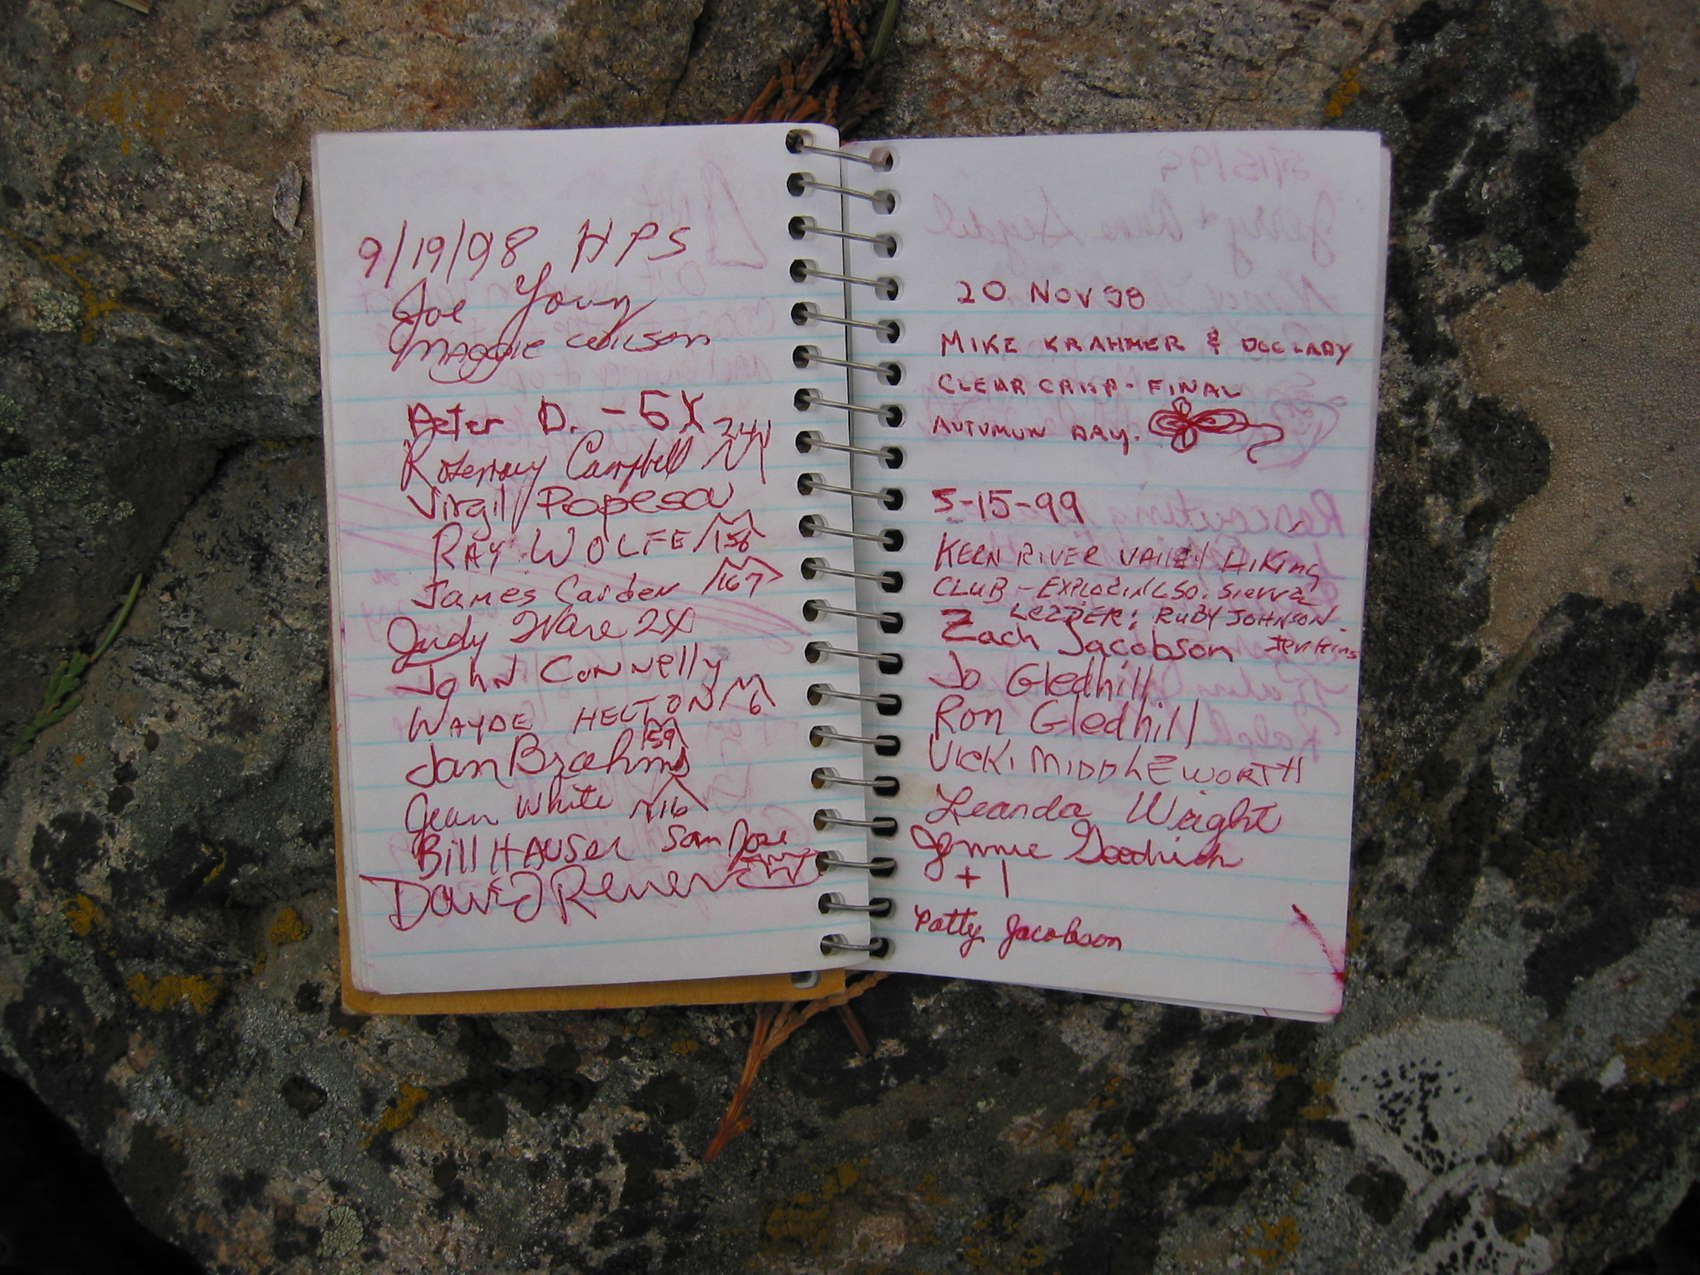 9/19/98 HPS
Joe Young
Maggie Wilson
Peter D. - 5X
Rosemary Campbell 241
Virgil Popescu
RAY WOLFE 156
James Carden 167
Judy Ware 24X
John Connelly
WAYDE HELTON 6
Jan Brahms 59
Jean White 16
Bill HAUSER San Jose
David
20 NOV 98
MIKE KRAHMER &
CLEAR CRISP - FINAL
AUTUMUN DAY.
5-15-99
KERN RIVER VALLEY HIKING
CLUB - EXPLORING SO. SIERRA
LEADER: RUBY JOHNSON
Zach Jacobson Jenkins
Jo Gledhill
Ron Gledhill
VICKI MIDDLEWORTH
Leanda Wright
Jennie Goodrich
+ 1
Patty Jacobson